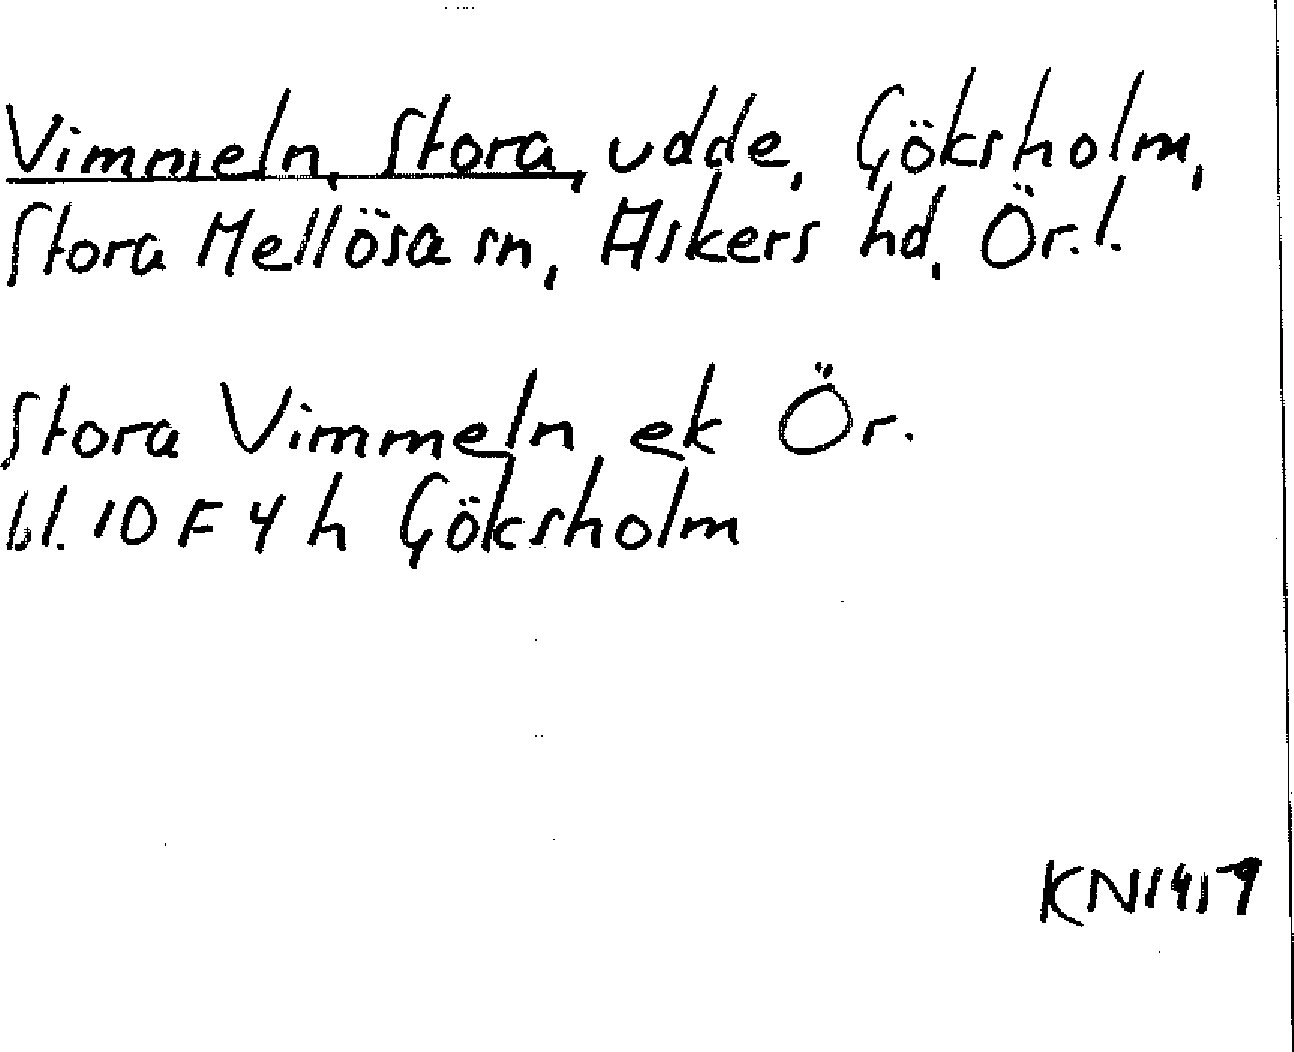 Vimmeln, Stora, udde, Göksholm,
Stora Mellösa sn, Askers hd, Ör. l.
Stora Vimmeln ek Ör.
bl. 10 F 4 h Göksholm